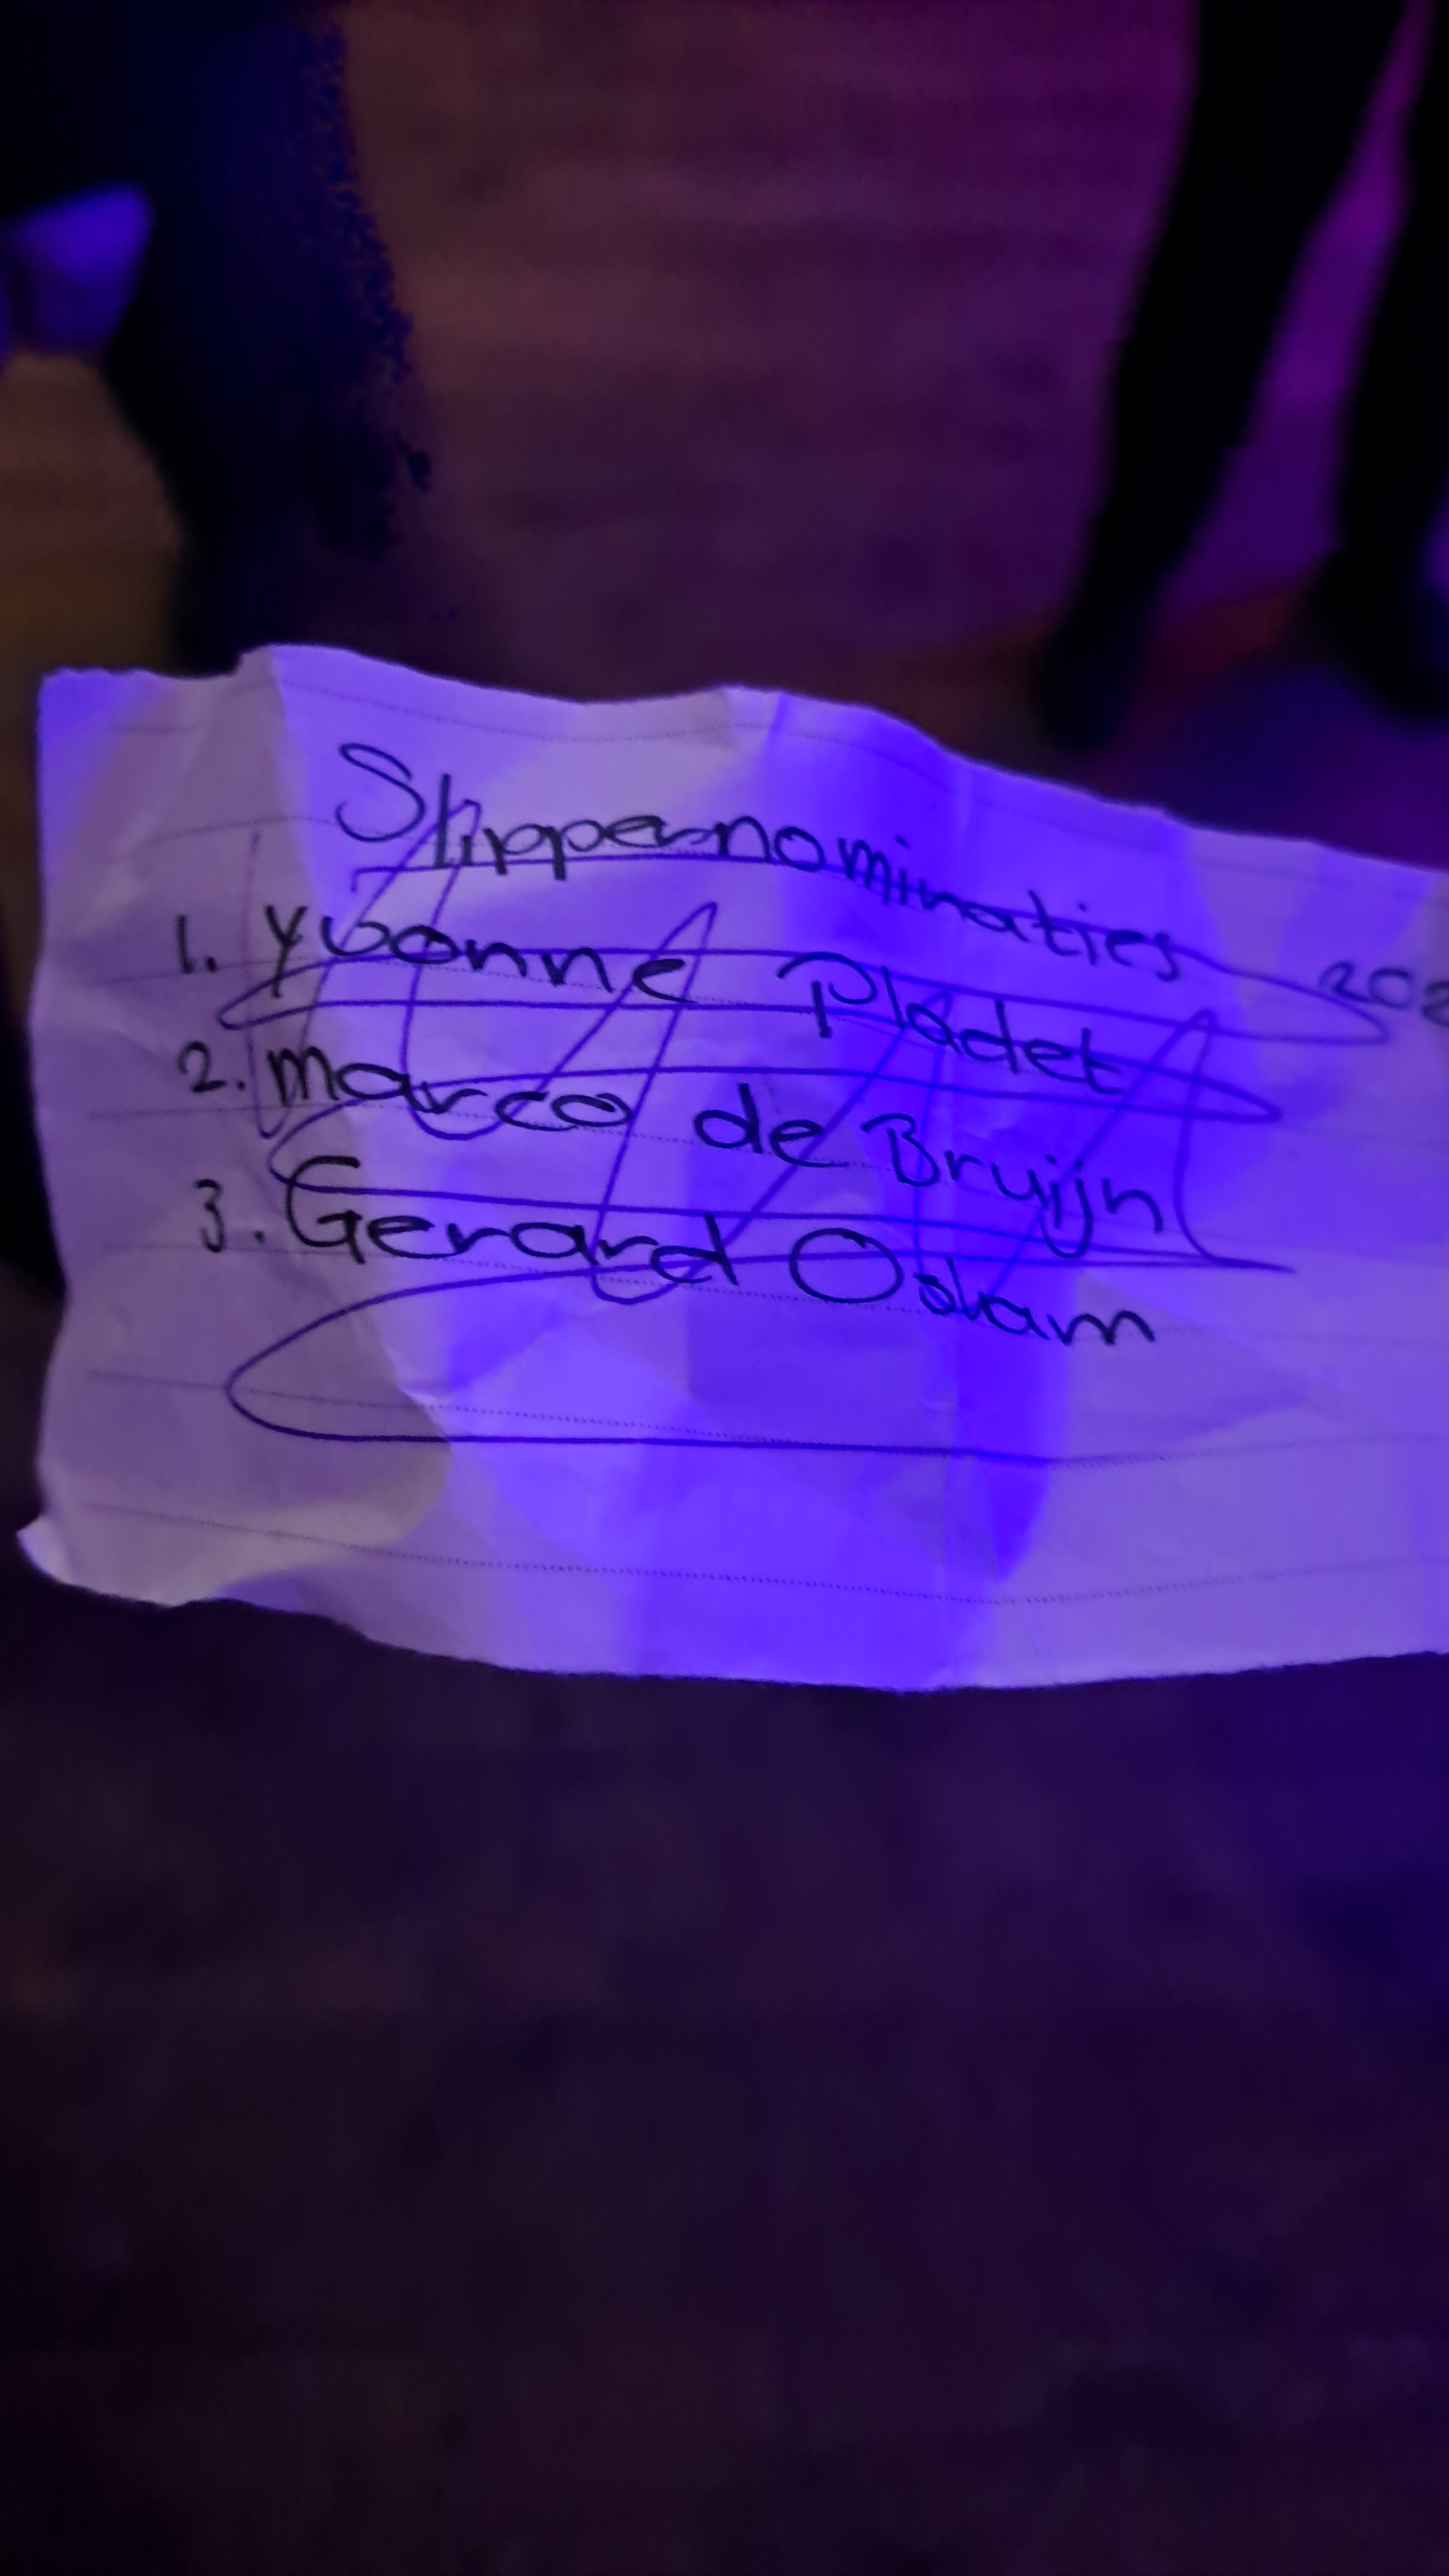 Slippernominaties 202
1. Yvonne Pladet
2. Marco de Bruijn
3. Gerard